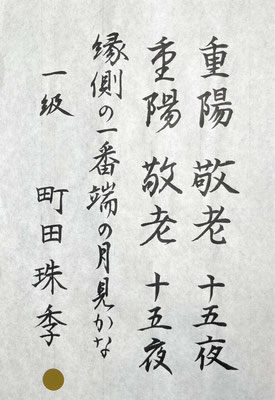 重陽 敬老 十五夜
重陽 敬老 十五夜
縁側の一番端の月見かな
一級 町田珠季